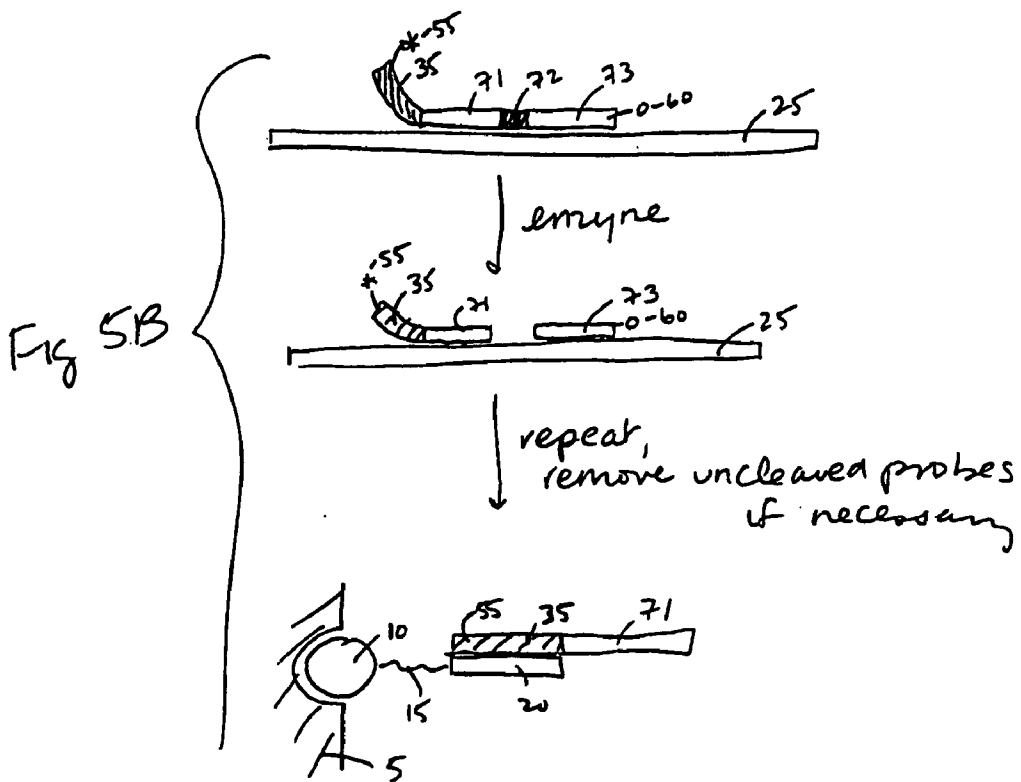 *-55
35
71
72
73
0-60
25
enzyme
*-55
35
71
73
0-60
25
Fig 5B
repeat,
remove uncleaved probes
if necessary
10
55
35
71
15
20
5